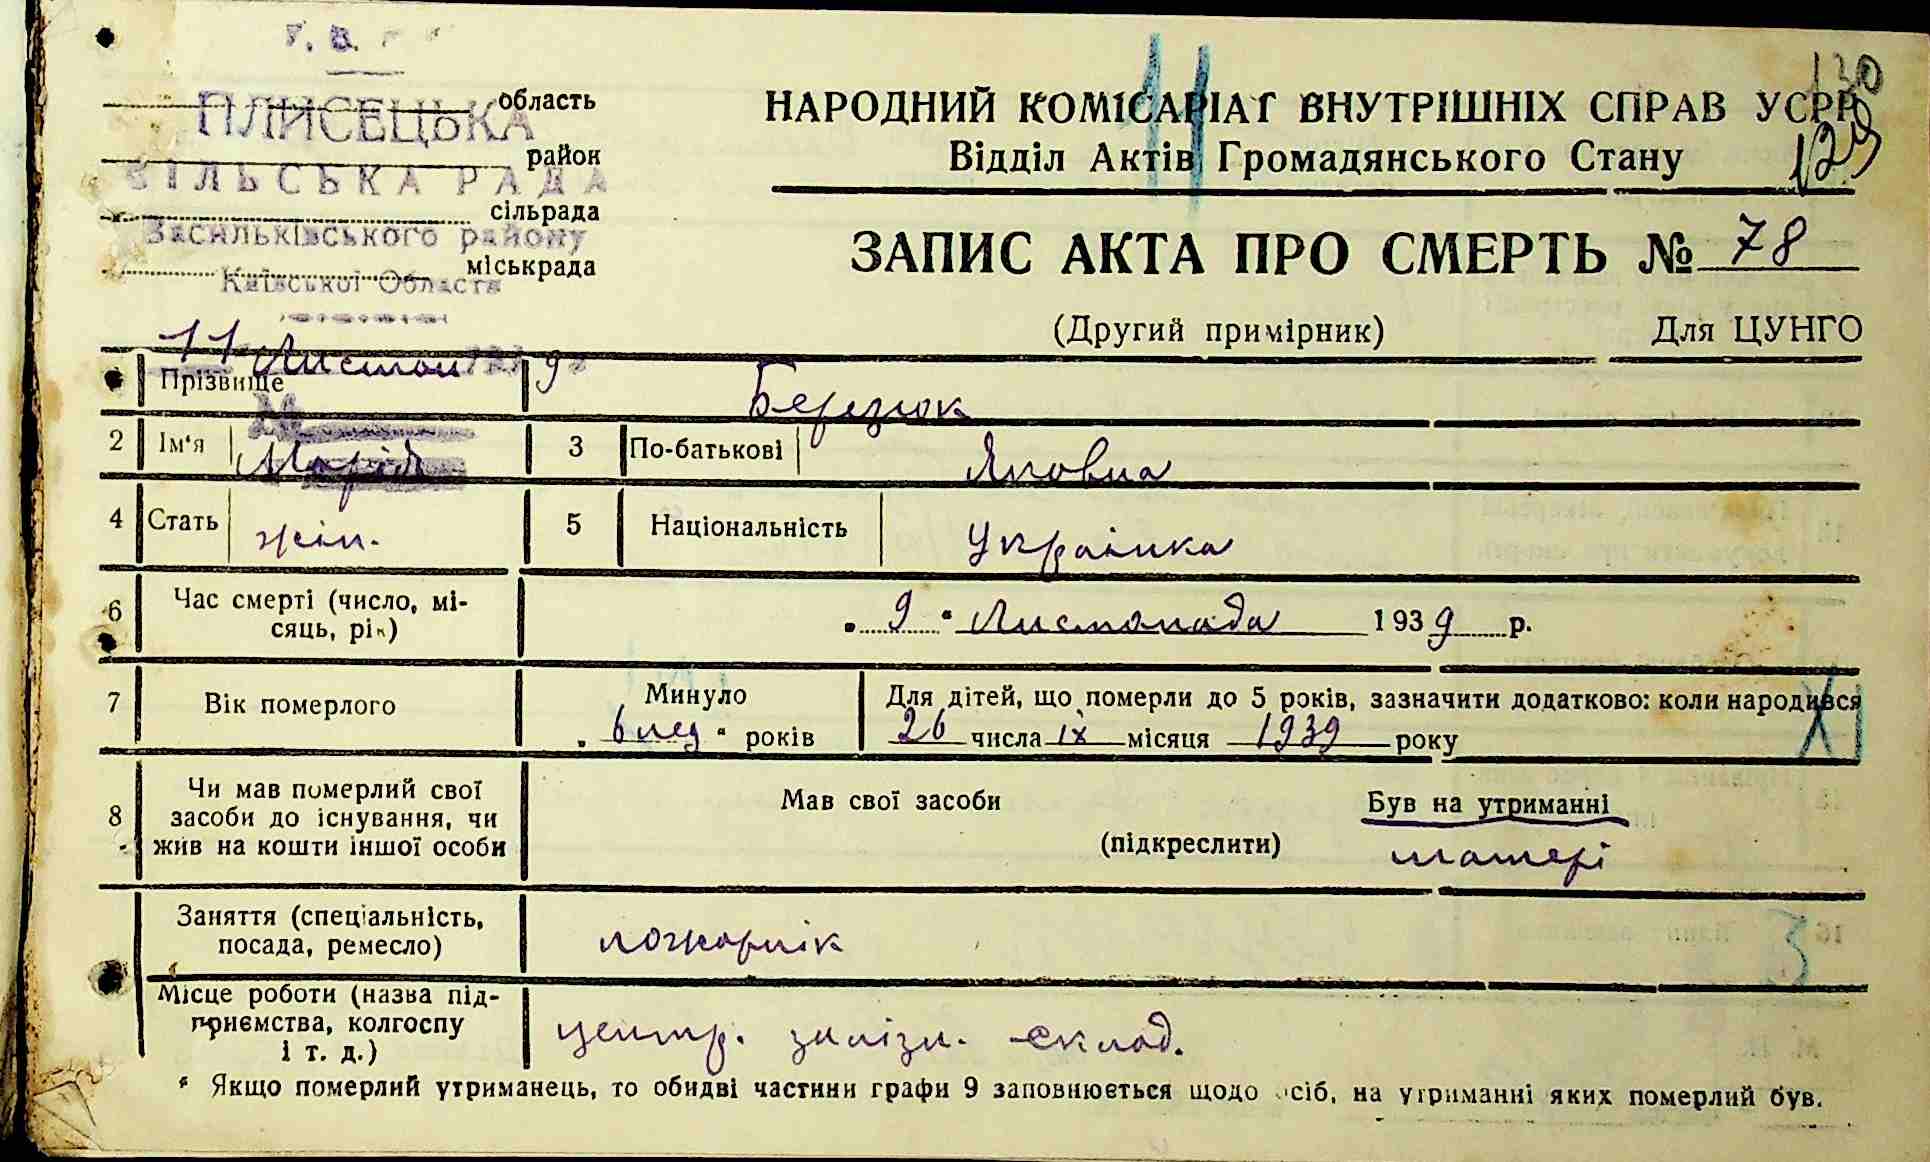 130
129
область
ПЛИСЕЦЬКА
район
СІЛЬСЬКА РАДА
сільрада
Васильківського району
міськрада
Київської Области
НАРОДНИЙ КОМІСАРІАТ ВНУТРІШНІХ СПРАВ УСРР
Відділ Актів Громадянського Стану
ЗАПИС АКТА ПРО СМЕРТЬ № 78
(Другий примірник) Для ЦУНГО
11 Листоп 9
Прізвище Березюк
2 Ім'я Марія 3 По-батькові Яковна
4 Стать жін. 5 Національність Українка
6 Час смерті (число, мі-
сяць, рік)
„9" Листопада 1939 р.
7 Вік померлого
Минуло
років
Для дітей, що померли до 5 років, зазначити додатково: коли народився
26 числа IX місяця 1939 року
8 Чи мав померлий свої
засоби до існування, чи
жив на кошти іншої особи
Мав свої засоби Був на утриманні
(підкреслити) матері
Заняття (спеціальність,
посада, ремесло)
пожарнік
Місце роботи (назва під-
приємства, колгоспу
і т. д.)
центр. залізн. склад.
* Якщо померлий утриманець, то обидві частини графи 9 заповнюється щодо осіб, на утриманні яких померлий був.